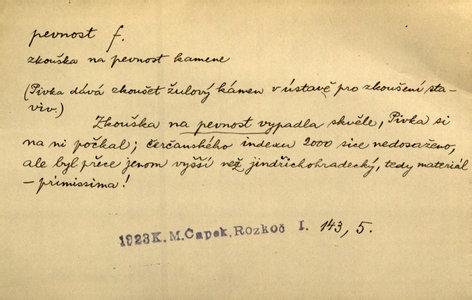 pevnost f.
zkouška na pevnost kamene
(Pivka dává zkoušet žulový kámen v ústavě pro zkoušení sta-
viv.)
Zkouška na pevnost vypadla skvěle, Pivka si
na ni počkal; čerčanského indexu 2000 sice nedosaženo,
ale byl přece jenom vyšší než jindřichohradecký, tedy materiál
– primissima!
1923 K. M. Čapek, Rozkoč I. 143, 5.